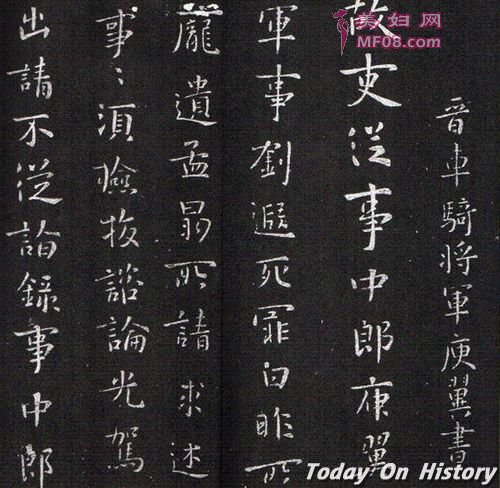 美妇网
MF08.com
晉車騎將軍庾翼書
故吏從事中郎庾翼
軍事劉遐死罪白昨所
龐遺孟所請求述
事〻須諮論光駕
出請不從諮錄事中郎
Today On History